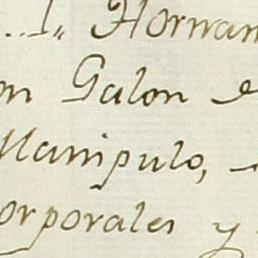 ..1,, Hornam
on Galon e
Manipulo,
orporales y